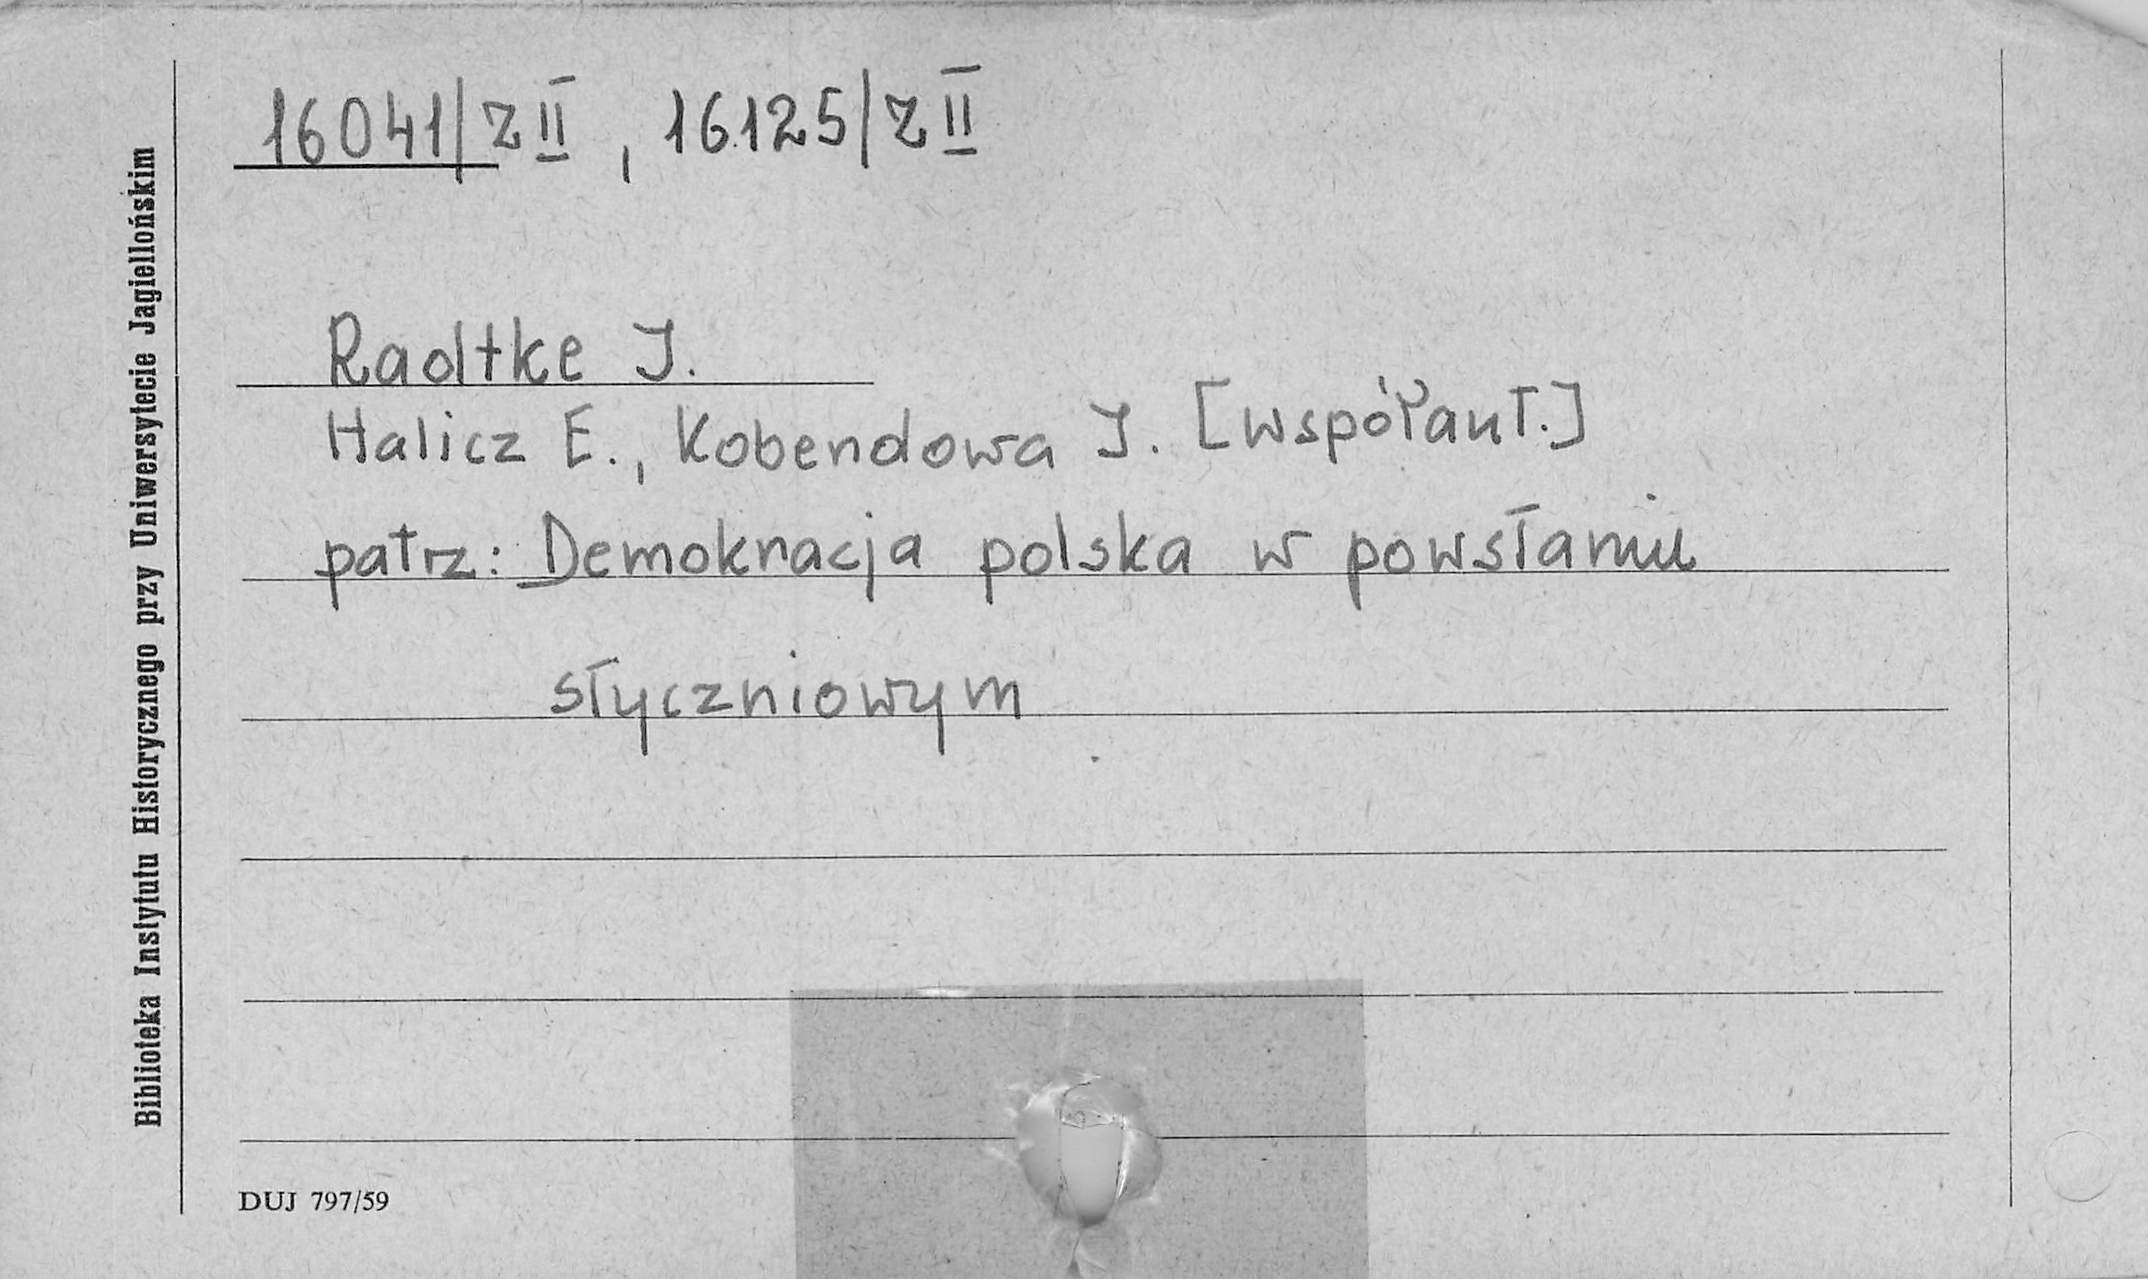 16041/Z II, 16125/Z II
Radtke I.
Halicz E., Kobendowa I. [współaut.]
patrz: Demokracja polska w powstaniu
styczniowym
Biblioteka Instytutu Historycznego przy Uniwersytecie Jagiellońskim
DUJ 797/59